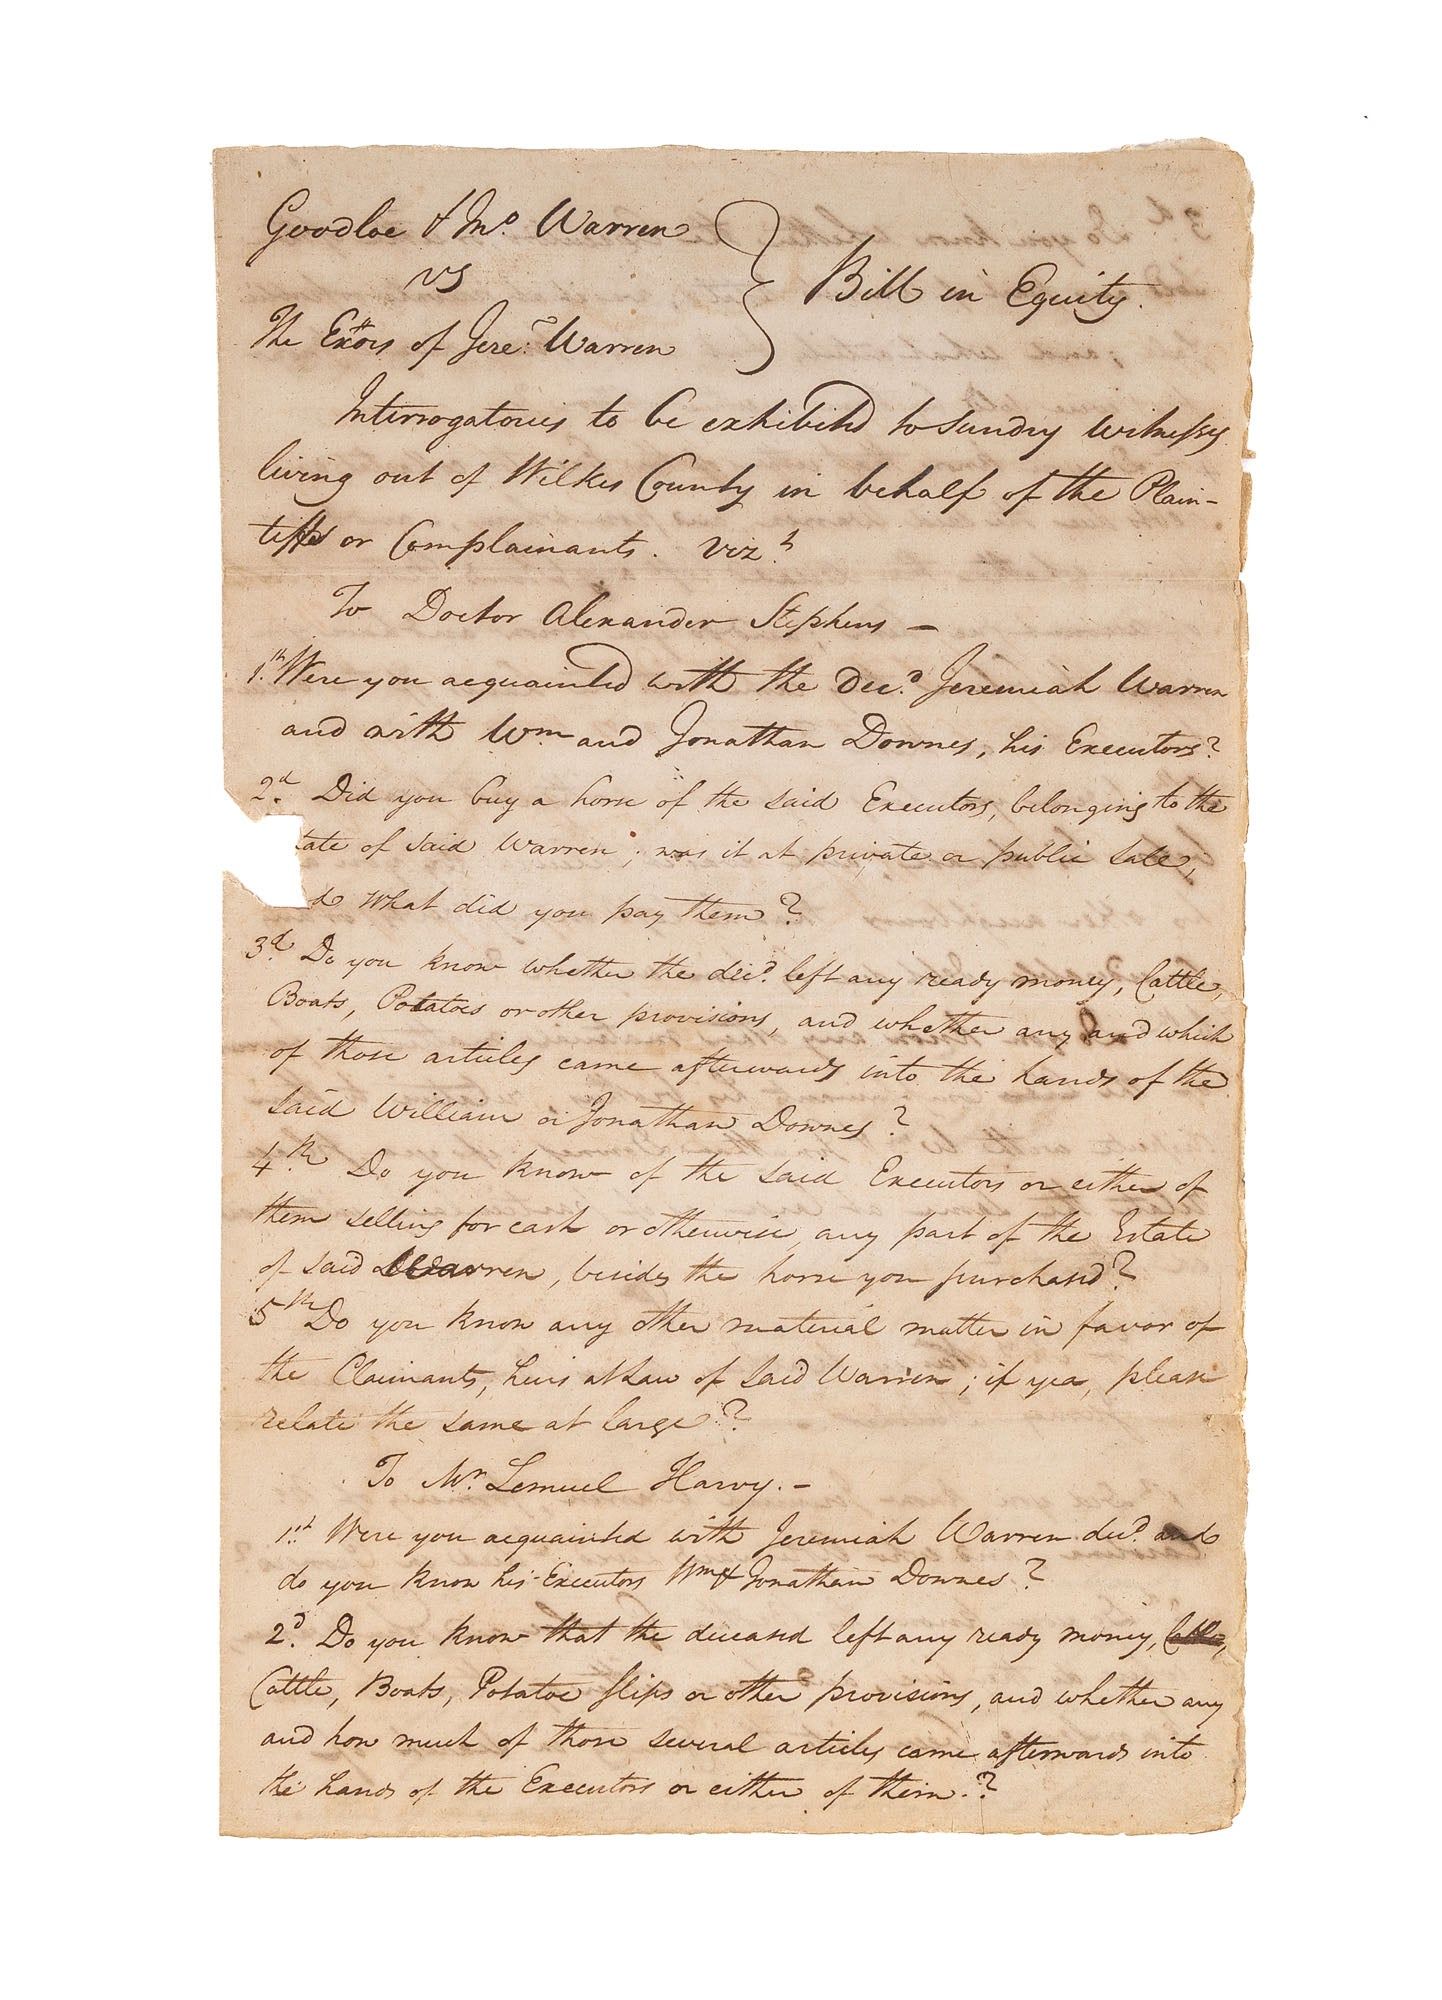 Goodloe & Mo. Warren
vs
The Exors of Jere. Warren
Bill in Equity.
Interrogatories to be exhibited to sundry witnesses
living out of Wilkes County in behalf of the Plain-
tiffs or Complainants. Vizt
To Doctor Alexander Stephens -
1.st Were you acquainted with the Decd. Jeremiah Warren
and with Wm and Jonathan Downes, his Executors?
2.d Did you buy a horse of the said Executors, belonging to the
tate of said Warren; was it at private or public sale,
& What did you pay them?
3.d Do you know whether the decd. left any ready money, Cattle,
Boats, Potatoes or other provisions, and whether any and which
of those articles came afterwards into the hands of the
said William or Jonathan Downes?
4.th Do you know of the said Executors or either of
them selling for cash or otherwise, any part of the Estate
of said Warren, besides the horse you purchasd?
5th Do you know any other material matter in favor of
the Claimants, heirs at Law of said Warren; if yea, please
relate the same at large?
To Mr. Lemuel Harvy.-
1.st Were you acquainted with Jeremiah Warren decd. and
do you know his Executors Wm & Jonathan Downes?
2d. Do you know that the deceasd left any ready money,
Cattle, Boats, Potatoe slips or other provisions, and whether any
and how much of those several articles came afterwards into
the hands of the Executors or either of them.?